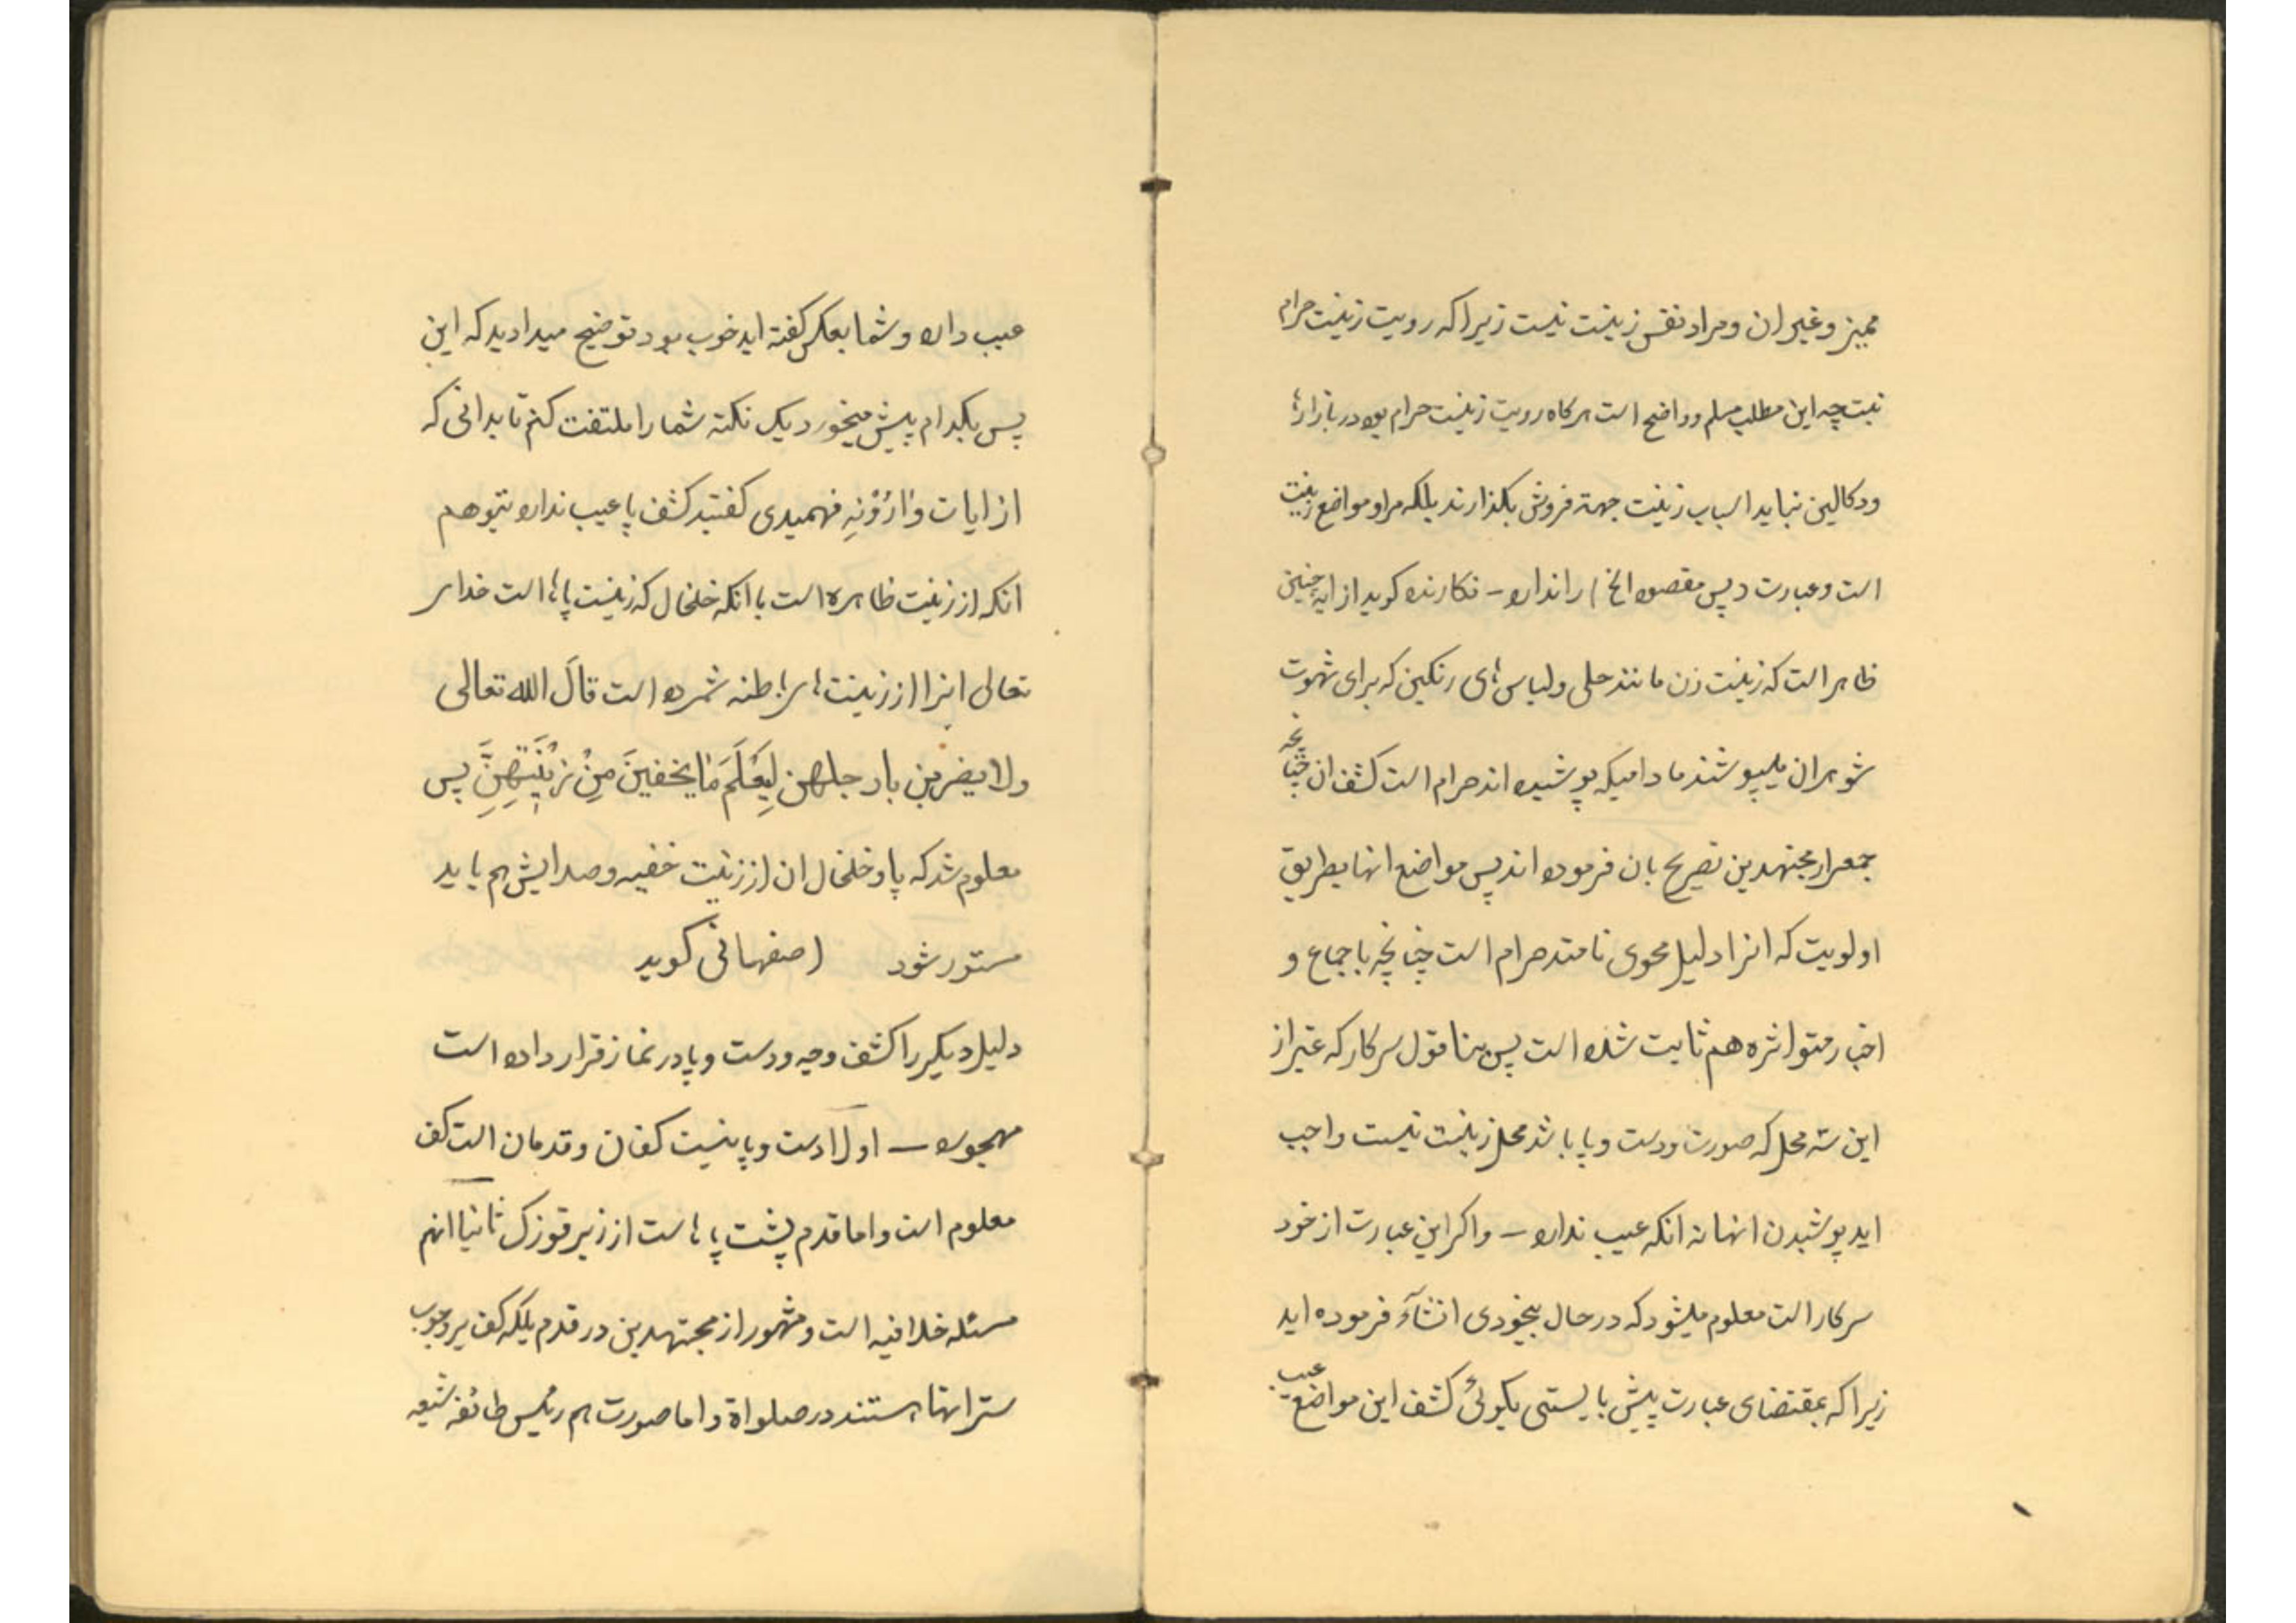 ممیز و غیر ان و مراد نفس زینت نیست زیرا که رویت زینت حرام
نیست چه این مطلب مسلم و واضح است هرکاه رویت زینت حرام بود در بازارها
و دکالین نباید اسباب زینت جهة فروش بکذارند بلکه مراد مواضع زینت
است و عبارت (پس مقصود الخ) را ندارد – نکارنده کوید از ایه چنین
ظاهر است که زینت زن مانند حلی و لباس های رنکین که برای شهوت
شوهران میپوشند مادامیکه پوشیده اند حرام است کشف ان چنانچه
جمعی از مجتهدین تصریح بان فرموده اند پس مواضع انها بطریق
اولویت که انرا دلیل فحوی نامند حرام است چنانچه باجماع و
اخبار متواتره هم ثابت شده است پس بنا قول سرکار که غیر از
این سه محل که صورت و دست و پا باشد محل زینت نیست واجب
اید پوشیدن انها نه انکه عیب ندارد – و اکر این عبارت از خود
سرکار است معلوم میشود که در حال بیخودی انشآء فرموده اید
زیرا که بمقتضای عبارت پیش بایستی بکوئی کشف این مواضع عیب
عیب دارد و شما بعکس کفته اید خوب بود توضیح میدادید که این
پس بکدام پیش میخورد یک نکته شما را ملتفت کنم تا بدانی که
از ایات وارُوْنِه فهمیدی کفتید کشف پا عیب ندارد بتوهم
انکه از زینت ظاهره است با انکه خلخال که زینت پاها است خدای
تعالی انرا از زینت های باطنه شمرده است قالَ الله تعالی
ولا یضربن بارجلهن لِیَعْلَمَ مٰا یخفینَ مِنْ زیْنَتِهِنَّ پس
معلوم شد که پا و خلخال ان از زینت خفیه و صدایش هم باید
مستور شود (اصفهانی کوید
دلیل دیکر را کشف وجه و دست و پا در نماز قرار داده است
مهجور – اولاً دست و پا نیست کفان و قدمان است کف
معلوم است و اما قدم پشت پا هاست از زیر قوزک ثانیا انهم
مسئله خلافیه است و مشهور از مجتهدین در قدم بلکه کف بر وجوب
ستر انها هستند در صلواة و اما صورت هم رئیس طائفه شیعه